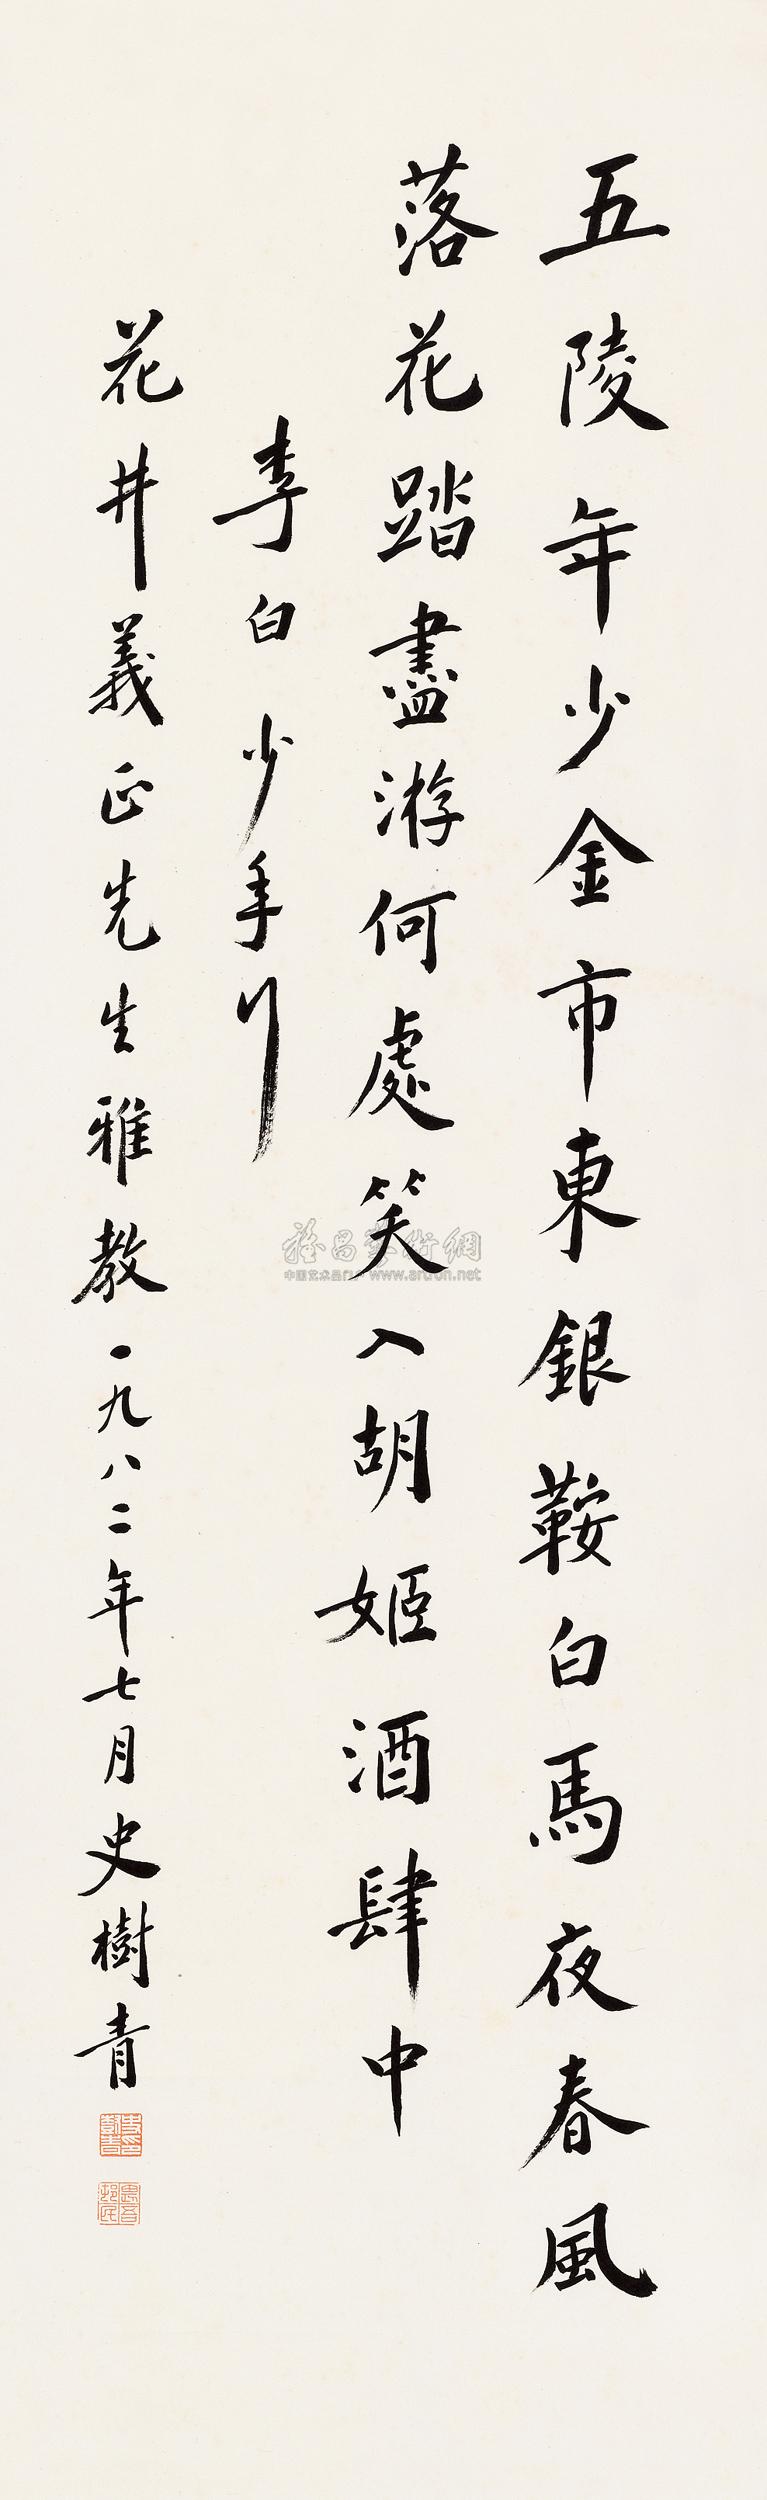 五陵年少金市東銀鞍白馬夜春風
落花踏盡游何處笑入胡姬酒肆中
李白少年行
花井義正先生雅教一九八二年七月史樹青
雅昌藝術網
中国艺术品门户 www.artron.net